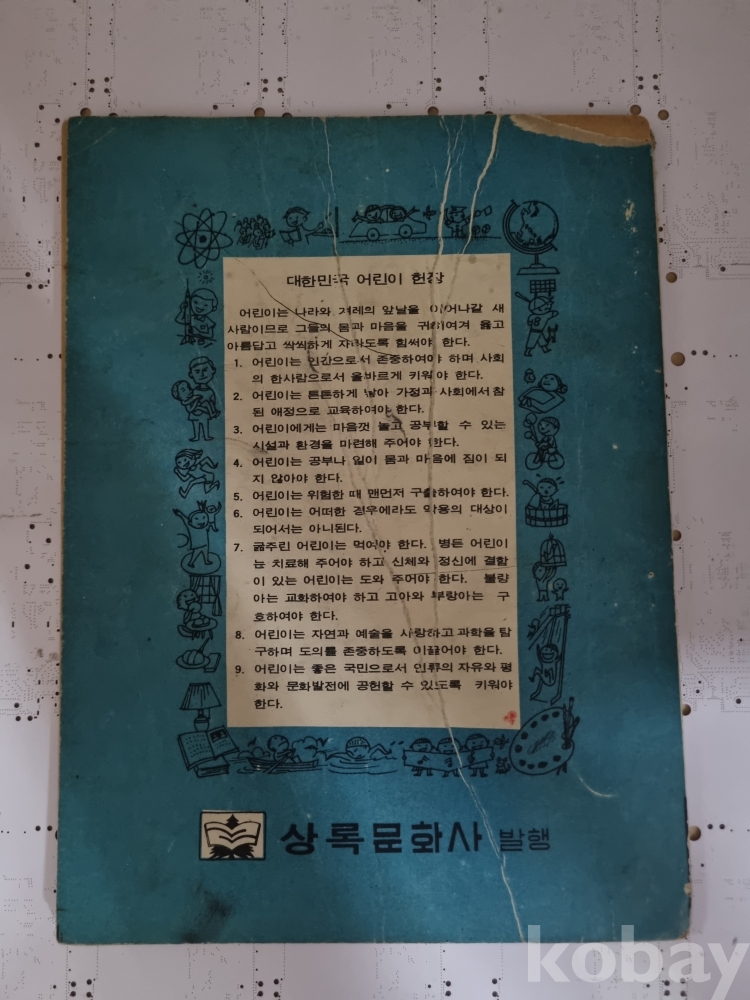 대한민국 어린이 헌장
어린이는 나라와 겨레의 앞날을 이어나갈 새
사람이므로 그들의 몸과 마음을 귀히여겨 옳고
아름답고 씩씩하게 자라도록 힘써야 한다.
1. 어린이는 인간으로서 존중하여야 하며 사회
의 한사람으로서 올바르게 키워야 한다.
2. 어린이는 튼튼하게 낳아 가정과 사회에서 참
된 애정으로 교육하여야 한다.
3. 어린이에게는 마음껏 놀고 공부할 수 있는
시설과 환경을 마련해 주어야 한다.
4. 어린이는 공부나 일이 몸과 마음에 짐이 되
지 않아야 한다.
5. 어린이는 위험한 때 맨먼저 구출하여야 한다.
6. 어린이는 어떠한 경우에라도 악용의 대상이
되어서는 아니된다.
7. 굶주린 어린이는 먹여야 한다. 병든 어린이
는 치료해 주어야 하고 신체와 정신에 결함
이 있는 어린이는 도와 주어야 한다. 불량
아는 교화하여야 하고 고아와 부랑아는 구
호하여야 한다.
8. 어린이는 자연과 예술을 사랑하고 과학을 탐
구하며 도의를 존중하도록 이끌어야 한다.
9. 어린이는 좋은 국민으로서 인류의 자유와 평
화와 문화발전에 공헌할 수 있도록 키워야
한다.
상록문화사 발행
kobay